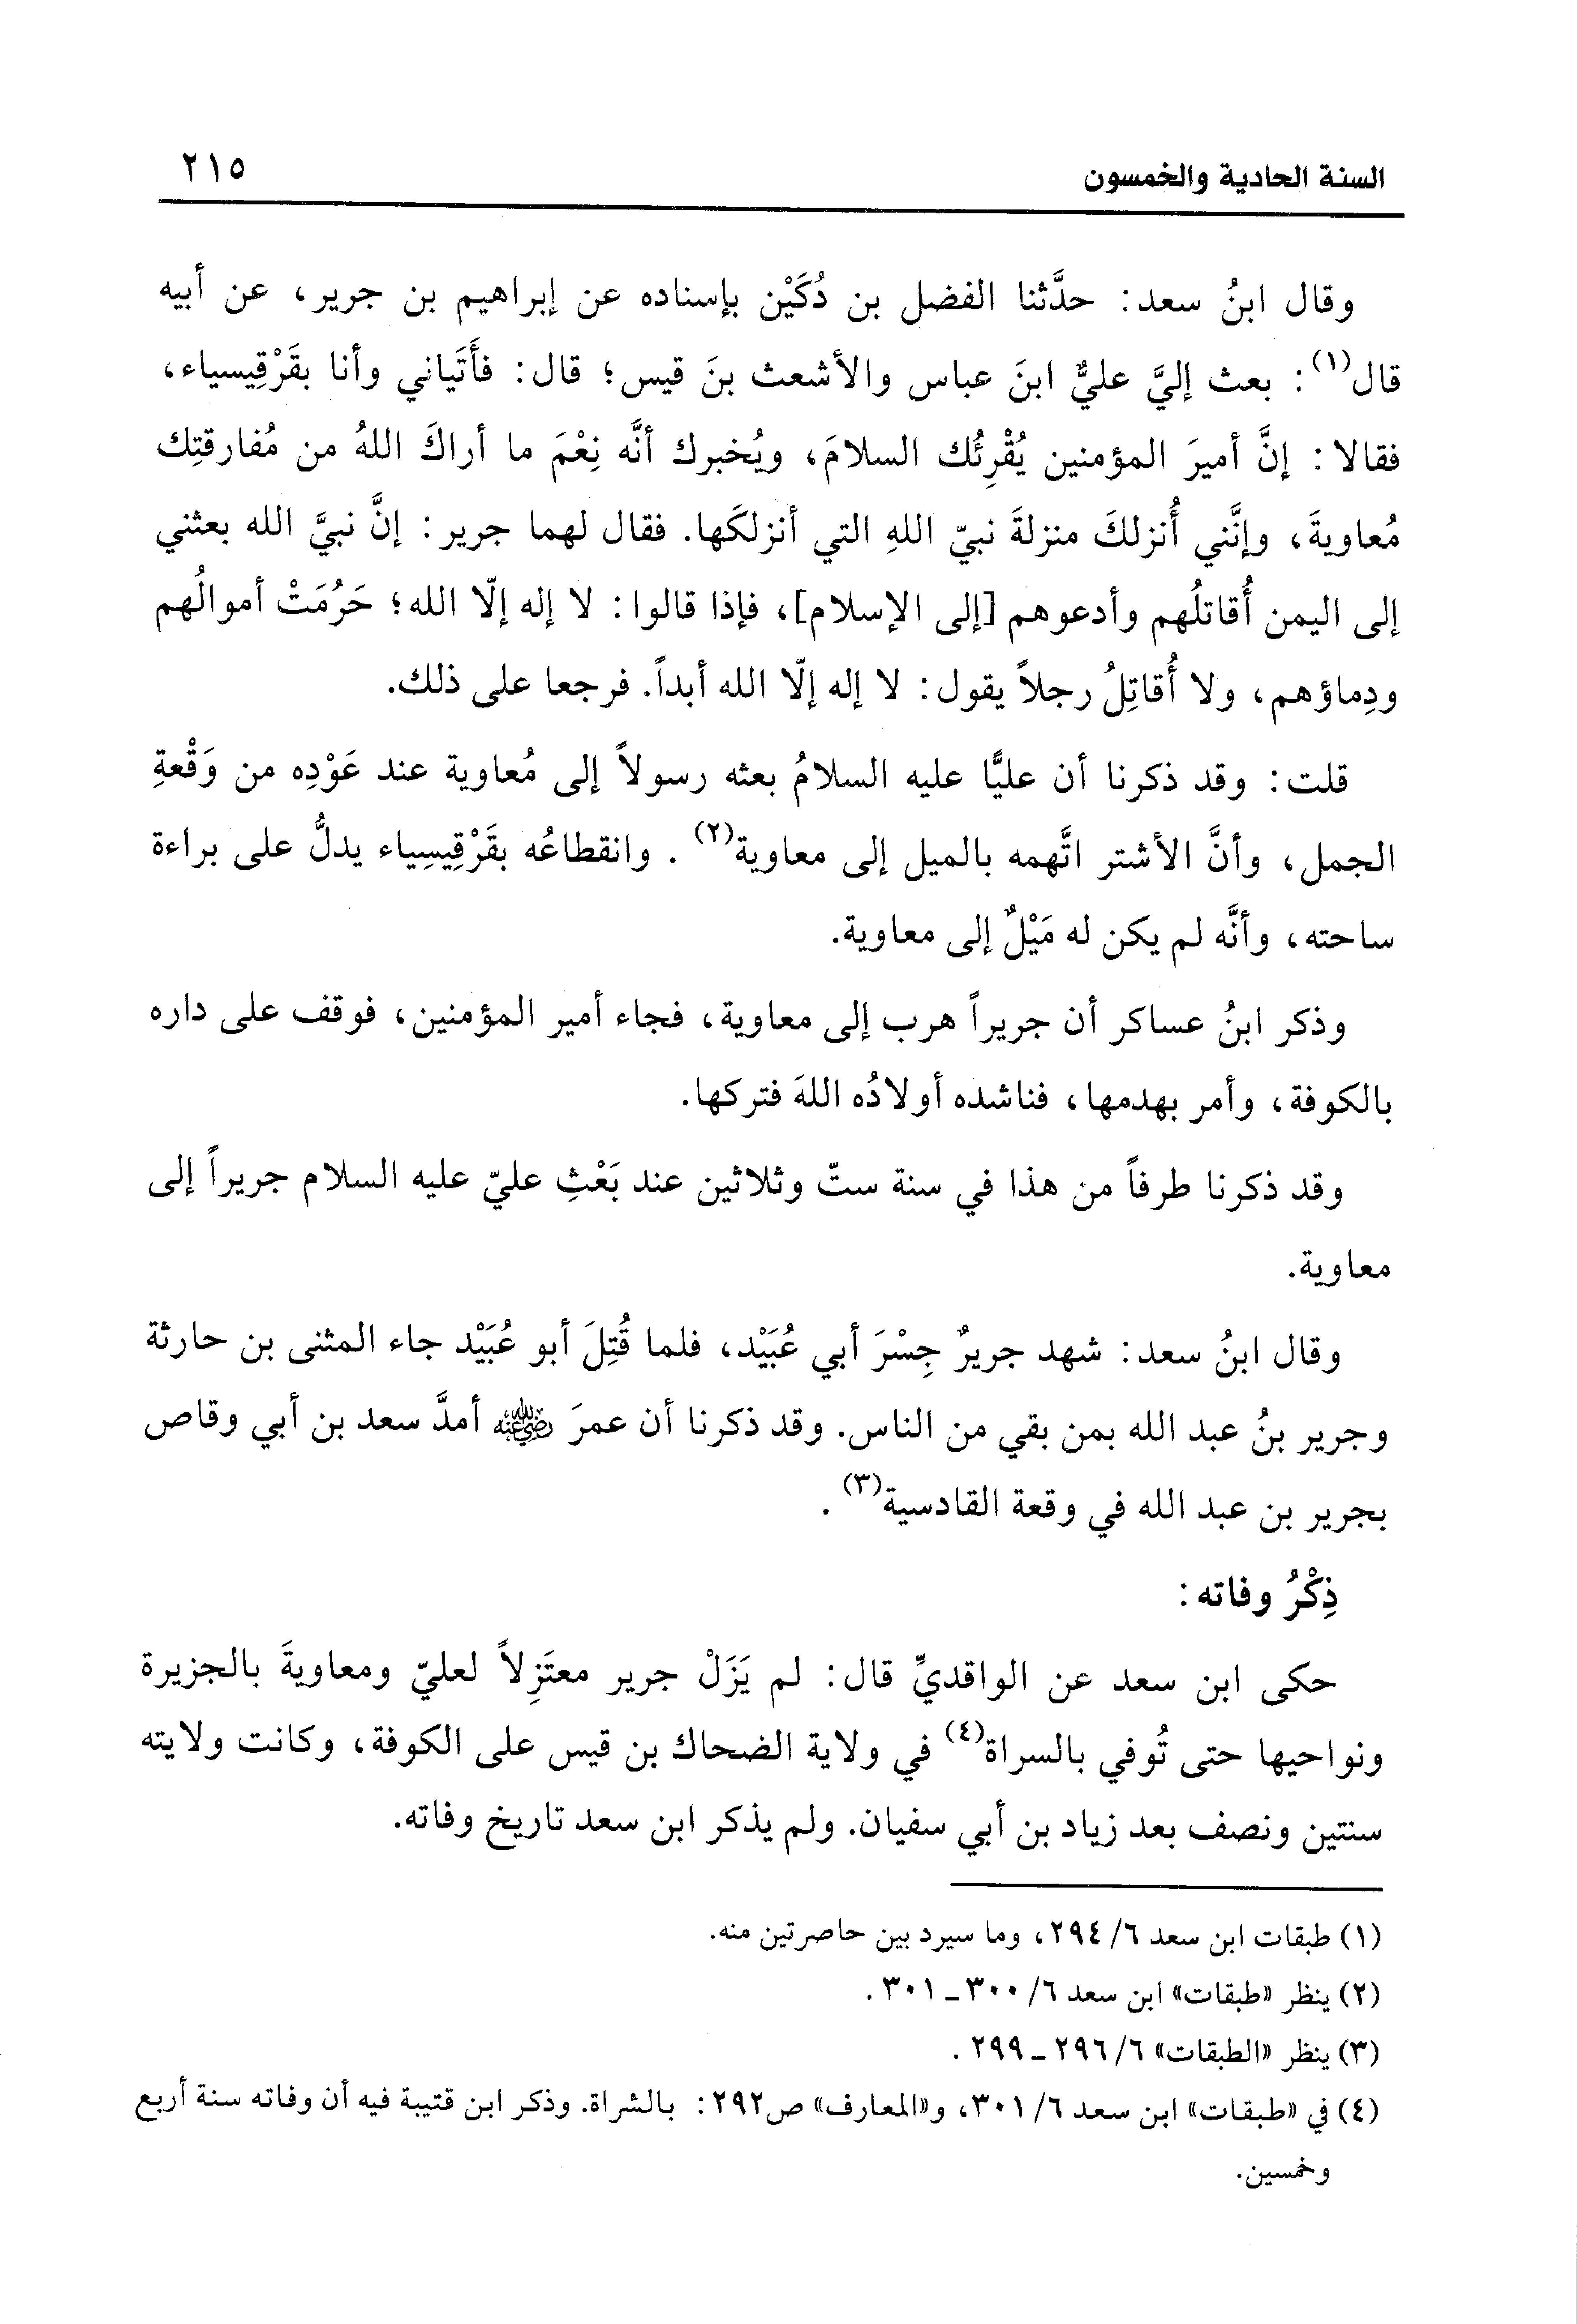 السنة الحادية والخمسون
٢١٥
وقال ابنُ سعد: حدَّثنا الفضل بن دُكَيْن بإسناده عن إبراهيم بن جرير، عن أبيه
قال(١): بعث إليَّ عليٌّ ابنَ عباس والأشعث بنَ قيس؛ قال: فأَتَياني وأنا بقَرْقِيسياء،
فقالا: إنَّ أميرَ المؤمنين يُقْرِئُك السلامَ، ويُخبرك أنَّه نِعْمَ ما أراكَ اللهُ من مُفارقتِك
مُعاويةَ، وإنَّني أُنزلكَ منزلةَ نبيّ اللهِ التي أنزلكَها. فقال لهما جرير: إنَّ نبيَّ الله بعثني
إلى اليمن أُقاتلُهم وأدعوهم [إلى الإسلام]، فإذا قالوا: لا إله إلّا الله؛ حَرُمَتْ أموالُهم
ودِماؤهم، ولا أُقاتِلُ رجلاً يقول: لا إله إلّا الله أبداً. فرجعا على ذلك.
قلت: وقد ذكرنا أن عليًّا عليه السلامُ بعثه رسولاً إلى مُعاوية عند عَوْدِه من وَقْعةِ
الجمل، وأنَّ الأشتر اتَّهمه بالميل إلى معاوية(٢). وانقطاعُه بقَرْقِيسِياء يدلُّ على براءة
ساحته، وأنَّه لم يكن له مَيْلٌ إلى معاوية.
وذكر ابنُ عساكر أن جريراً هرب إلى معاوية، فجاء أمير المؤمنين، فوقف على داره
بالكوفة، وأمر بهدمها، فناشده أولادُه اللهَ فتركها.
وقد ذكرنا طرفاً من هذا في سنة ستّ وثلاثين عند بَعْثِ عليّ عليه السلام جريراً إلى
معاوية.
وقال ابنُ سعد: شهد جريرٌ جِسْرَ أبي عُبَيْد، فلما قُتِلَ أبو عُبَيْد جاء المثنى بن حارثة
وجرير بنُ عبد الله بمن بقي من الناس. وقد ذكرنا أن عمرَ رضي الله عنه أمدَّ سعد بن أبي وقاص
بجرير بن عبد الله في وقعة القادسية(٣).
ذِكْرُ وفاته:
حكى ابن سعد عن الواقديِّ قال: لم يَزَلْ جرير معتَزِلاً لعليّ ومعاويةَ بالجزيرة
ونواحيها حتى تُوفي بالسراة(٤) في ولاية الضحاك بن قيس على الكوفة، وكانت ولايته
سنتين ونصف بعد زياد بن أبي سفيان. ولم يذكر ابن سعد تاريخ وفاته.
(١) طبقات ابن سعد ٦/ ٢٩٤، وما سيرد بين حاصرتين منه.
(٢) ينظر «طبقات» ابن سعد ٦/ ٣٠٠ - ٣٠١.
(٣) ينظر «الطبقات» ٦/ ٢٩٦ - ٢٩٩.
(٤) في «طبقات» ابن سعد ٦/ ٣٠١، و«المعارف» ص٢٩٢: بالشراة. وذكر ابن قتيبة فيه أن وفاته سنة أربع
وخمسين.